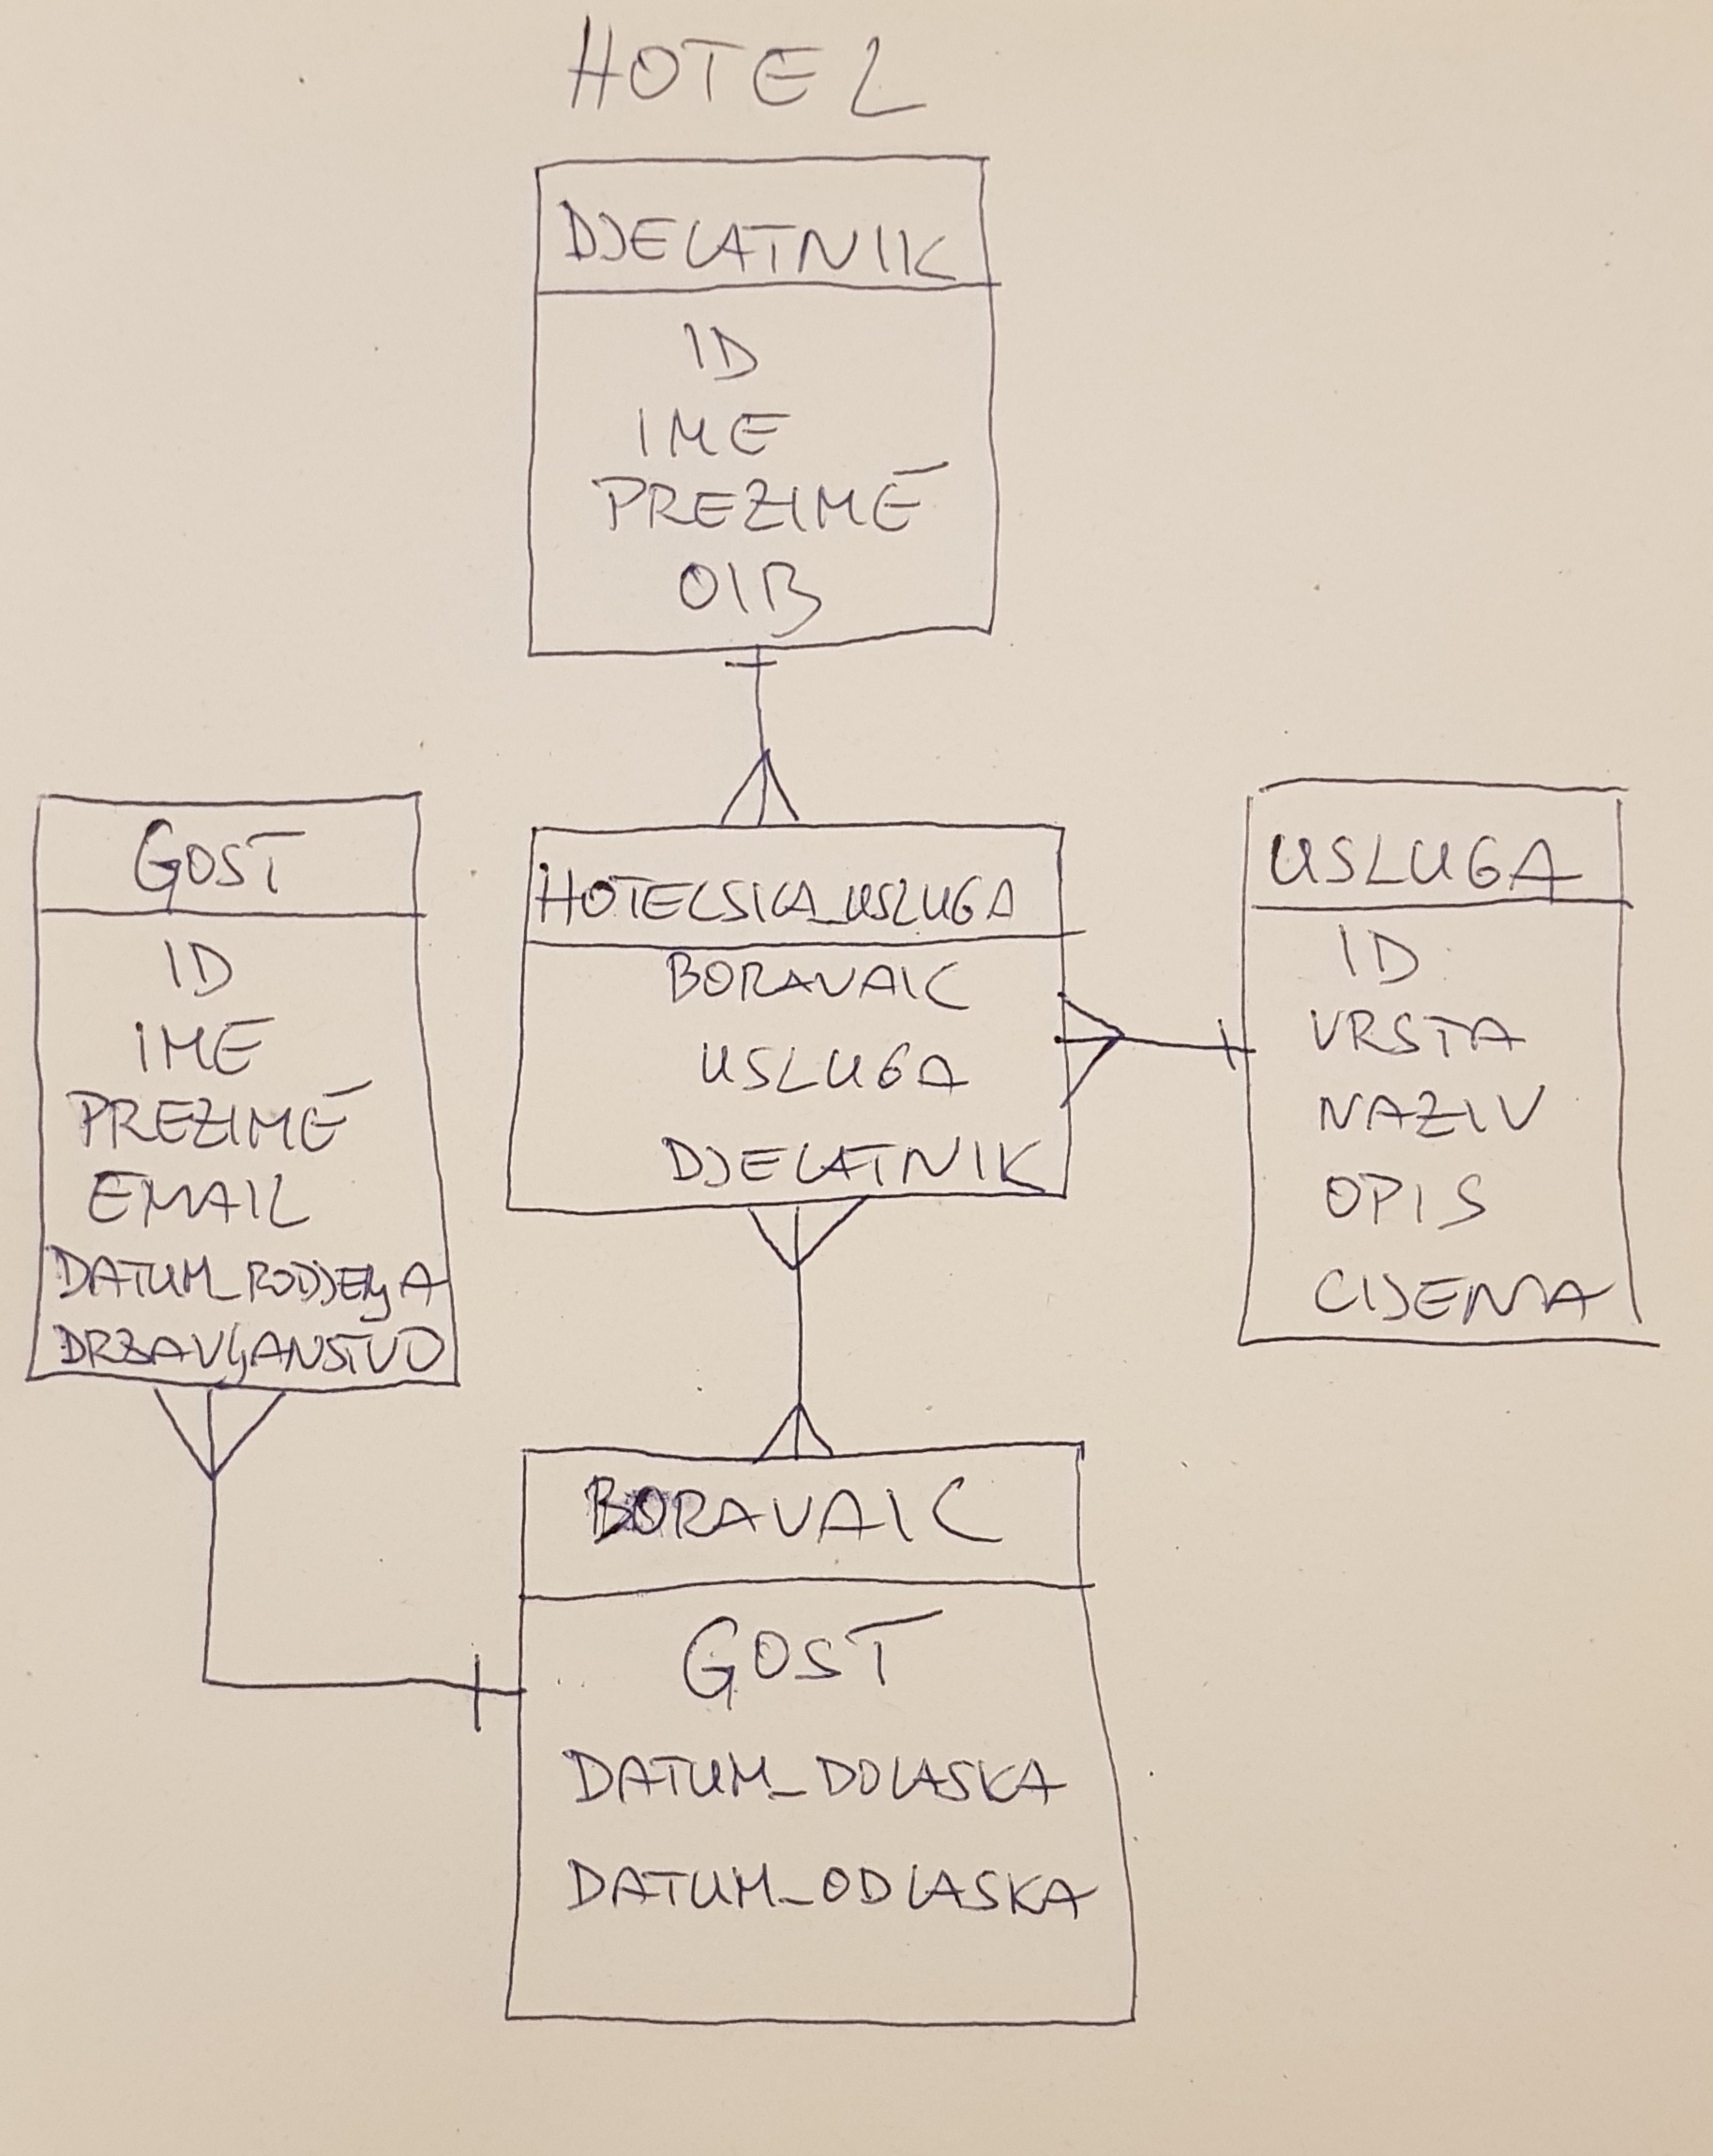 HOTEL
DJELATNIK
ID
IME
PREZIME
OIB
GOST
ID
IME
PREZIME
EMAIL
DATUM_RODJENJA
DRZAVLJANSTVO
HOTELSKA_USLUGA
BORAVAK
USLUGA
DJELATNIK
USLUGA
ID
VRSTA
NAZIV
OPIS
CIJENA
BORAVAK
GOST
DATUM_DOLASKA
DATUM_ODLASKA